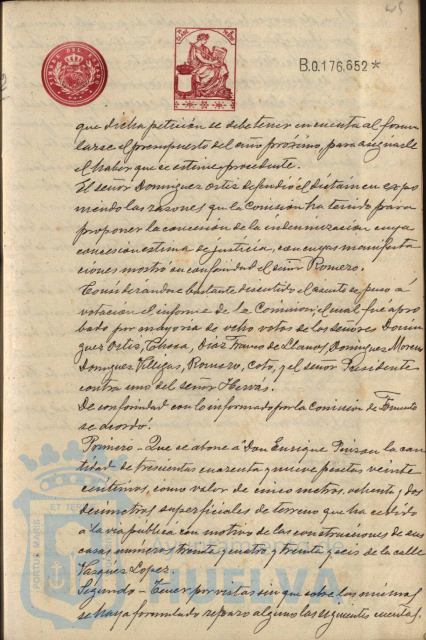 B.0.176.652*
que dicha petición se debe tener en cuenta al formu
larse el presupuesto del año próximo, para asignarle
el haber que se estime procedente.
El señor Dominguez Ortiz defendió el dictamen expo
niendo las razones que la Comisión ha tenido para
proponer la concesión de la indemnización, cuya
concesión estima de justicia, con cuyas manifesta
ciones mostró su conformidad el señor Romero.
Considerándose bastante discutido el asunto se puso á
votación el informe de la Comision, el cual fué apro
bado por mayoria de ocho votos de los señores Domin
guez Ortiz, Checa, Diaz Franco de Llanos, Dominguez Moreno
Dominguez Villegas, Romero, Coto, y el señor Presidente
contra uno del señor Hervás.
De conformidad con lo informado por la Comision de Fomento
se acordó.
Primero — Que se abone á Don Enrique Pinzon la can
tidad de trescientas cuarenta y nueve pesetas veinte
centimos, como valor de cinco metros, ochenta y dos
decimetros superficiales de terreno que ha cedido
á la via publica con motivo de las construcciones de sus
casas numeros treinta y cuatro y treinta y seis de la calle
Vazquez Lopez.
Segundo — Tener por vistas sin que sobre las mismas
se haya formulado reparo alguno las siguientes cuentas.
PORTUS MARIS ET TERRAE
HUELVA